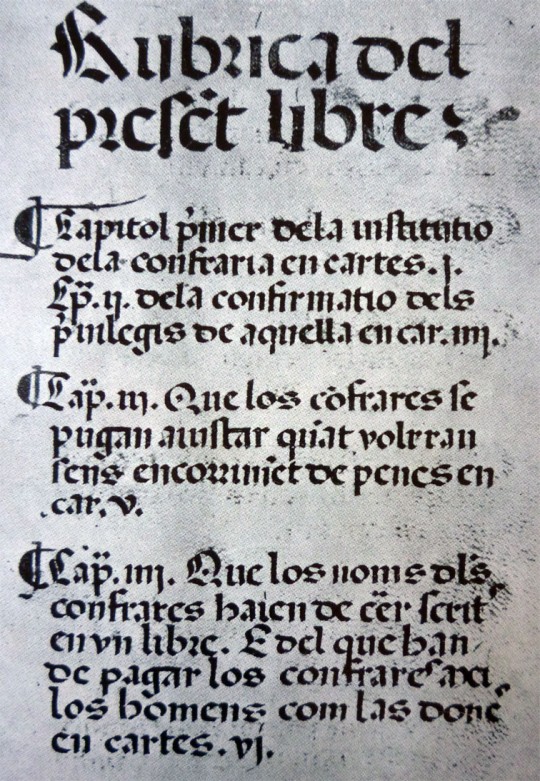 Rubrica del
preset libre:
¶ Capitol pmer dela institutio
dela confraria en cartes .j.
Cp̄. ij. dela confirmatio dels
p̄uilegis de aquella en car. iiij.
¶ Cap̄. iij. Que los cōfrares se
pugan aiustar quāt volrran
sens encorrimēt de penes en
car. v.
¶ Cap̄. iiij. Que los noms dl̄s
confrares haien de ēer scrit
en vn libre. E del que han
de pagar los confrares axi
los homens com las donē
en cartes . vj.